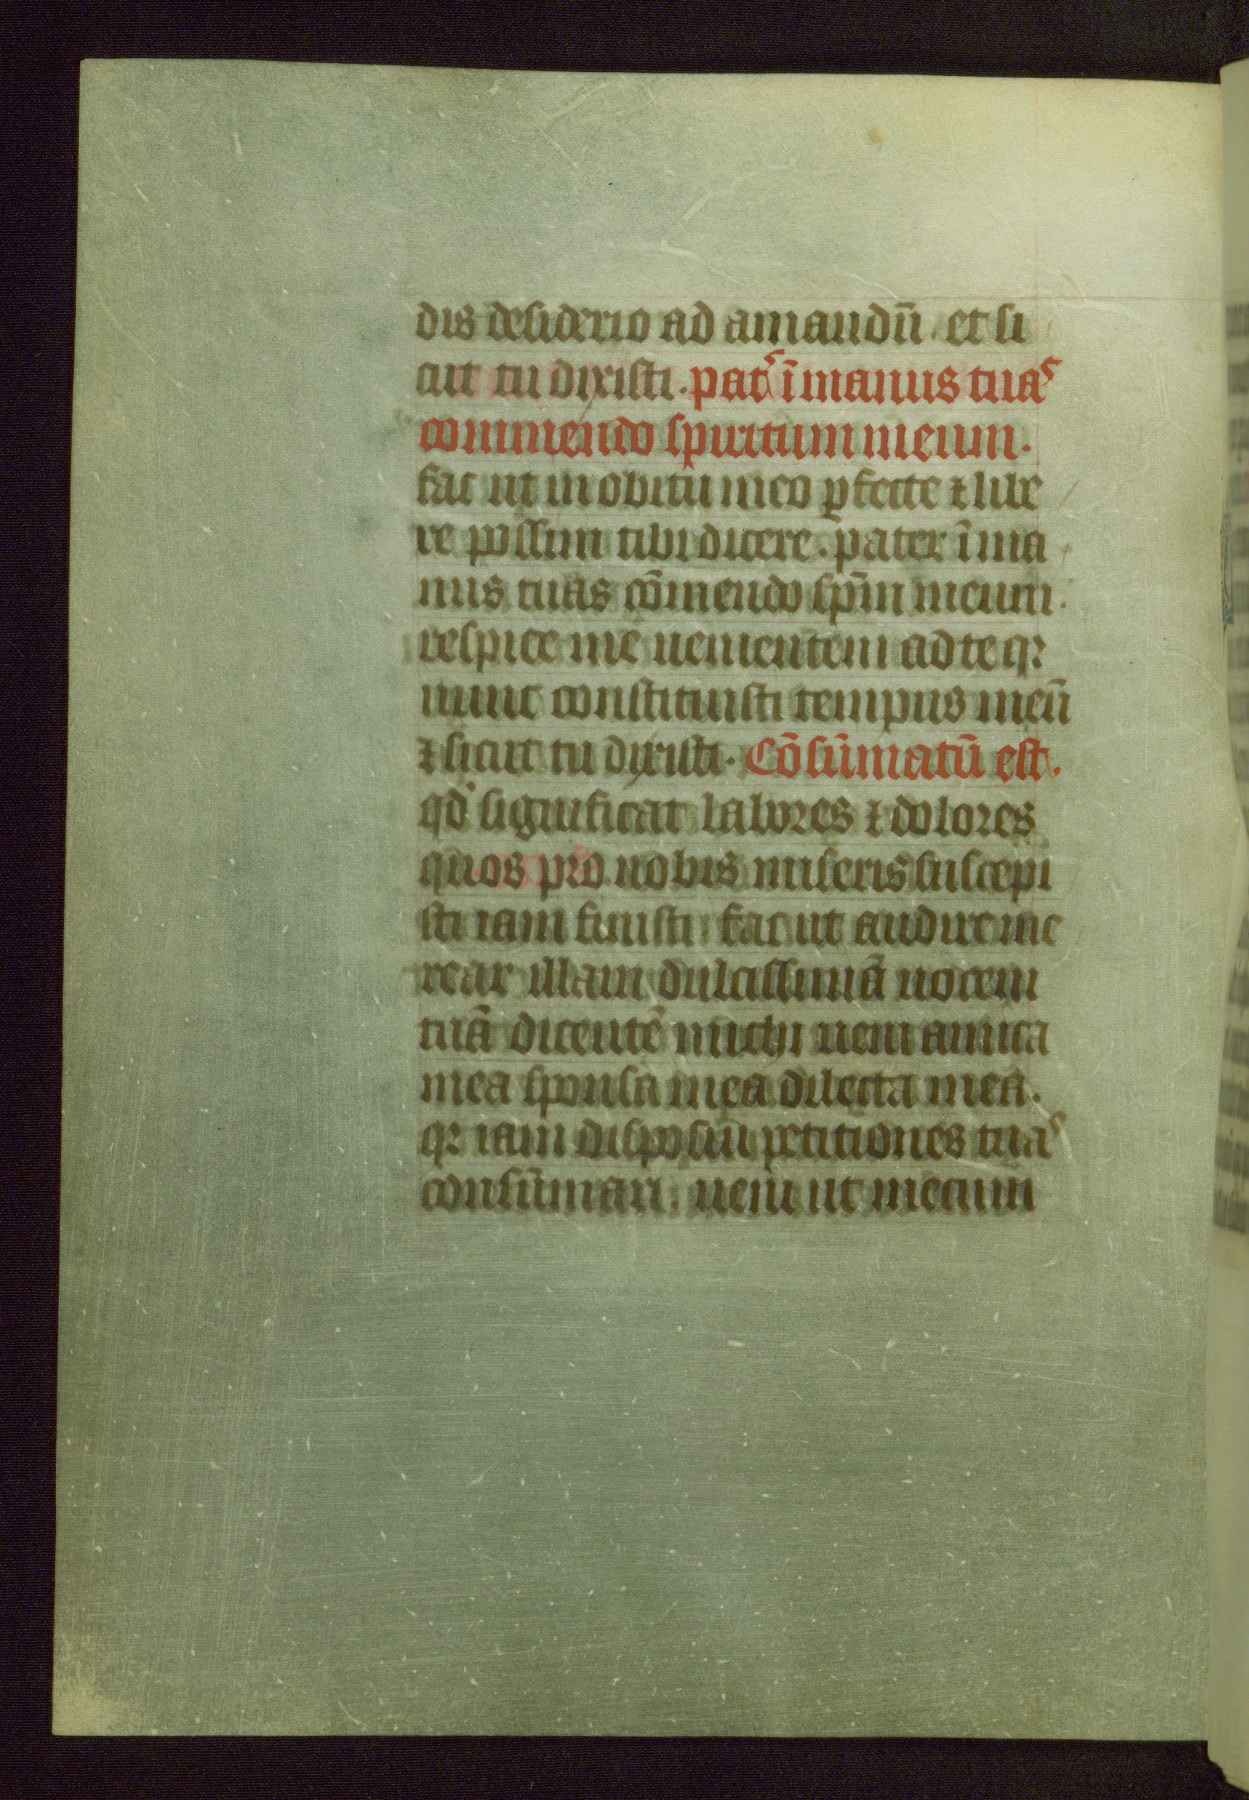 dis desiderio ad amandū. et si
cut tu dixisti. pat͛ ī manus tuas
commendo spiritum meum.
fac ut in obitu meo ꝑfecte ⁊ libe
re possim tibi dicere. pater ī ma
nus tuas cōmendo spm̄ meum.
respice me uenientem ad te qꝛ
nunc constituisti tempus meū
⁊ sicut tu dixisti. Cōsūmatū est.
qd' significat labores ⁊ dolores
quos pro nobis miseris suscepi
sti iam finisti. fac ut audire me
rear illam dulcissimā uocem
tuā dicentē michi ueni amica
mea sponsa mea dilecta mea.
qꝛ iam disposui petitiones tuas
consūmari. ueni ut mecum